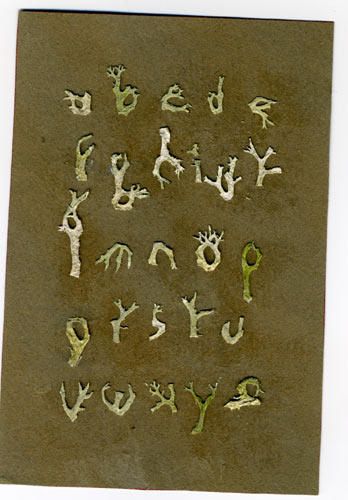 a b c d e
f g h i j k
l m n o p
q r s t u
v w x y z